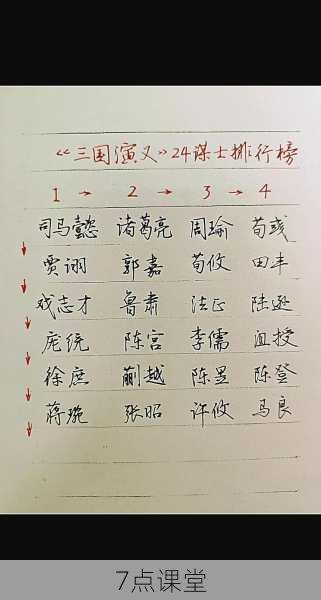 《三国演义》24谋士排行榜
1 → 2 → 3 → 4
司马懿 诸葛亮 周瑜 荀彧
贾诩 郭嘉 荀攸 田丰
戏志才 鲁肃 法正 陆逊
庞统 陈宫 李儒 沮授
徐庶 蒯越 陈昱 陈登
蒋琬 张昭 许攸 马良
7点课堂